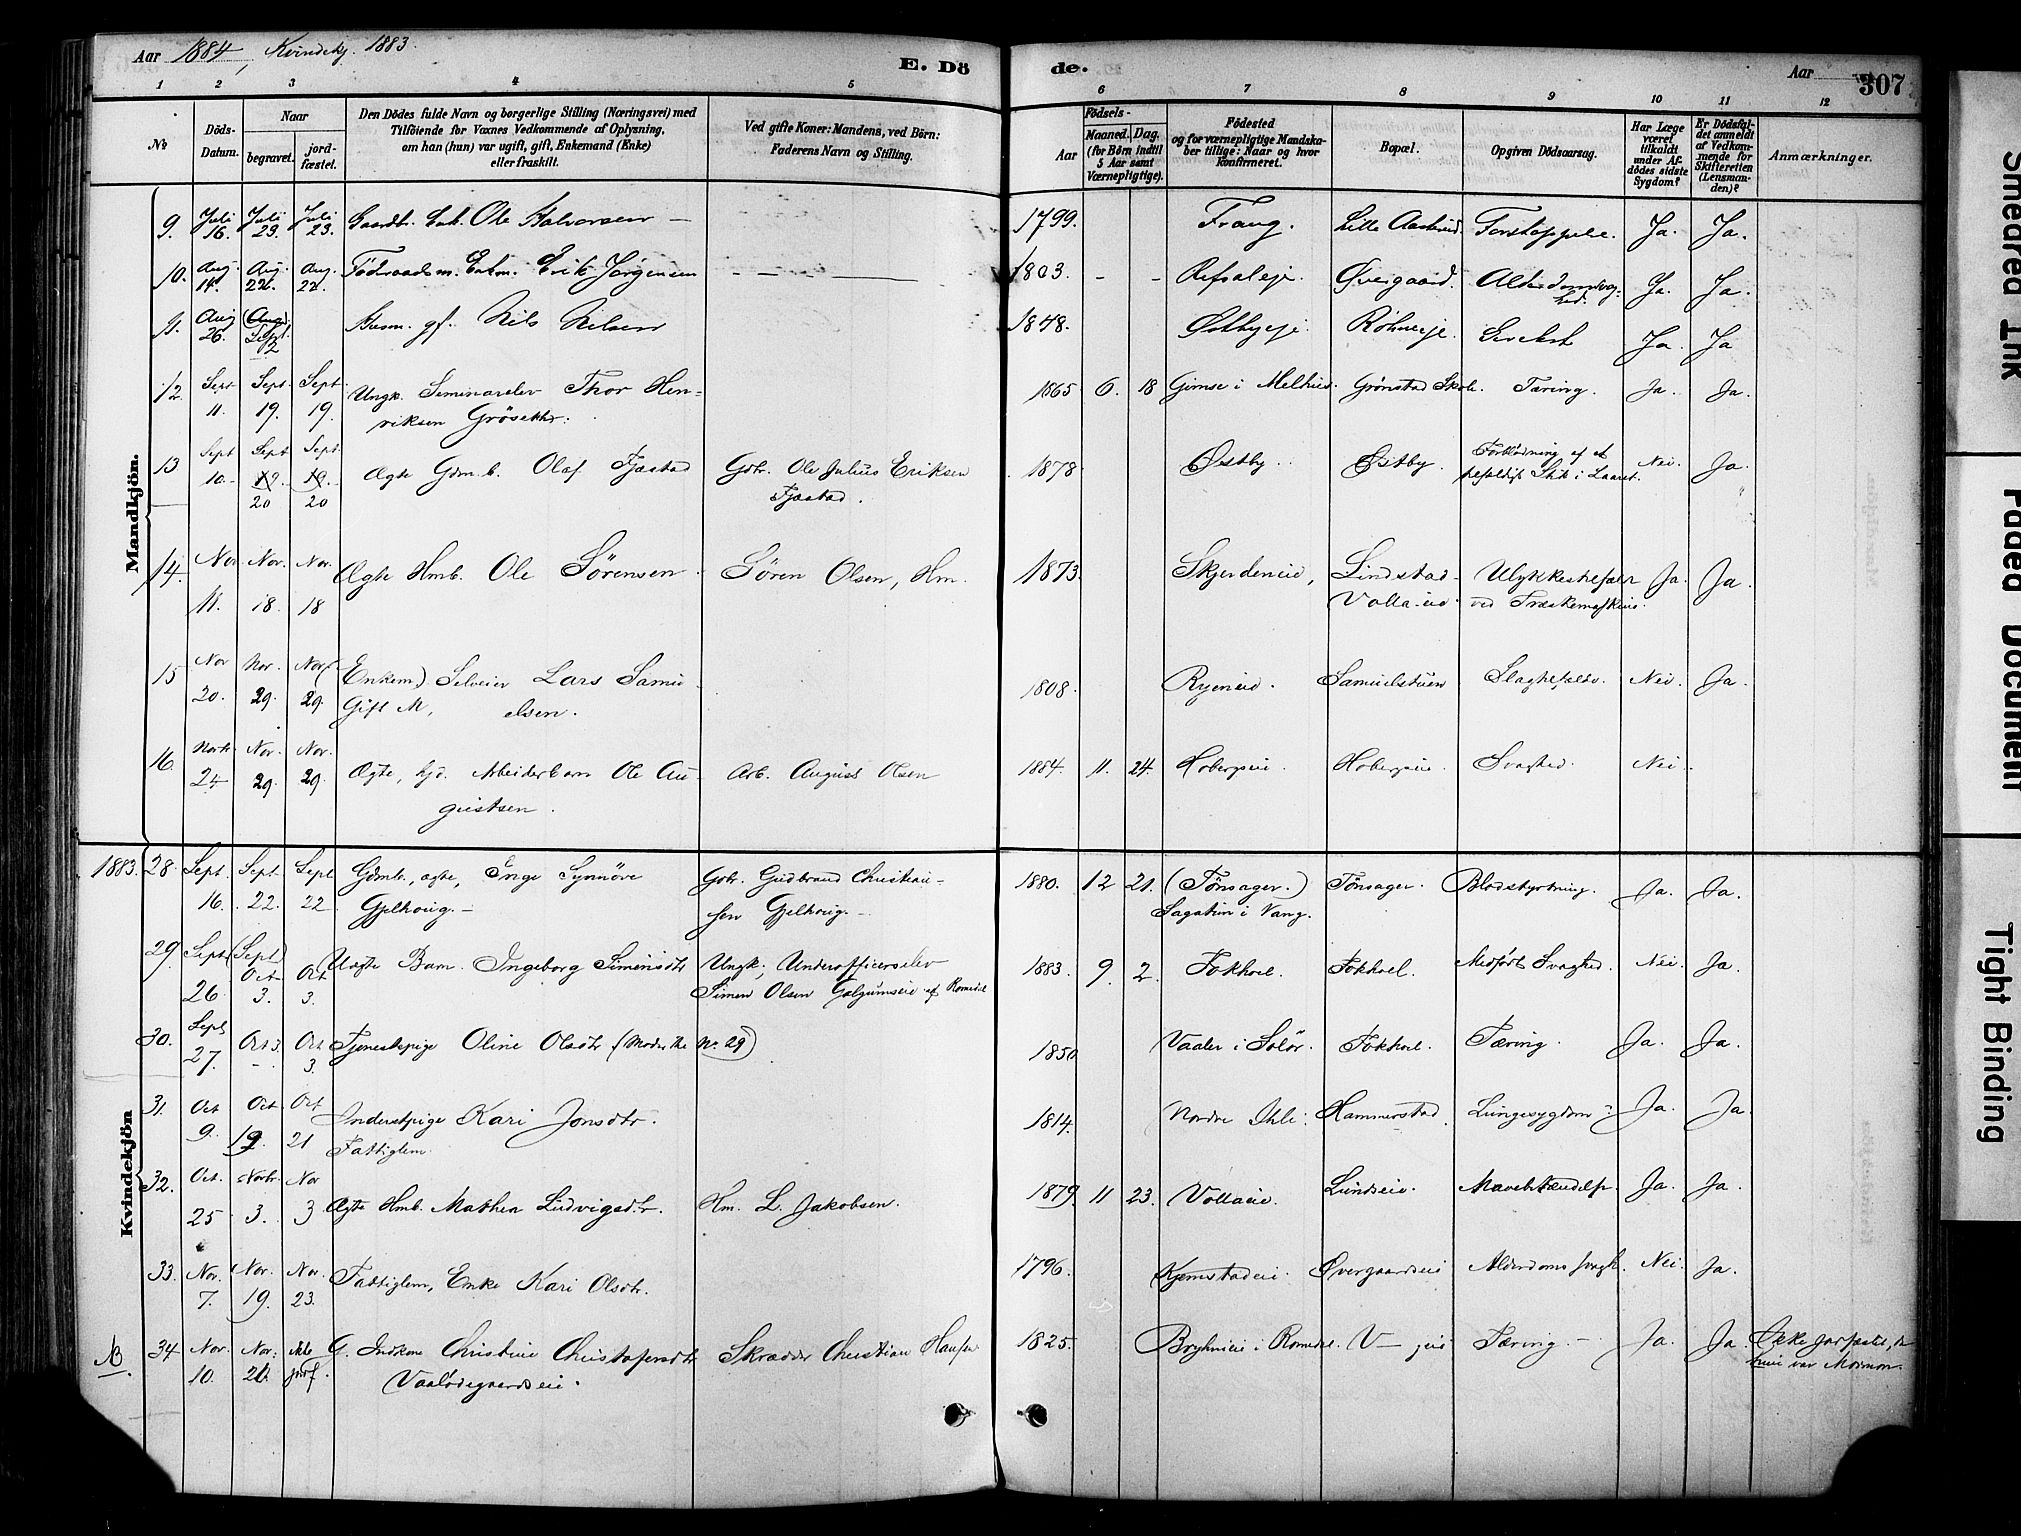 Aar 1884, Kvindekj. 1883.
E. Dö
de.
Aar 307
1 2 3 4 5 6 7 8 9 10 11 12
No
Döds-
Datum.
Naar
begravet.
jord-
fæstet.
Den Dödes fulde Navn og borgerlige Stilling (Næringsvei) med
Tilföiende for Vaxnes Vedkommende af Oplysning,
om han (hun) var ugift, gift, Enkemand (Enke)
eller fraskilt.
Ved gifte Koner: Mandens, ved Börn:
Faderens Navn og Stilling.
Födsels-
Aar
Maaned. Dag.
(for Börn indtil
5 Aar samt
Værnepligtige).
Födested
og for værnepligtige Mandska-
ber tillige: Naar og hvor
konfirmeret.
Bopæl.
Opgiven Dödsaarsag.
Har Læge
været
tilkaldt
under Af-
dödes sidste
Sygdom?
Er Dödsfal-
det anmeldt
af Vedkom-
mende for
Skifteretten
(Lensman-
den)?
Anmærkninger.
Mandkjön.
9. Juli 16. Juli 23. Juli 23. Gaardbr. Enk. Ole Halvorsen — 1799. Frang. Lille Forstoppelse. Ja. Ja.
10. Aug. 14. Aug. 22. Aug. 22. Föderaadsm. Enkm. Erik Jörgensen 1803. - - Refsaleje. Övergaard. Alderdomssvag-
hed. Ja. Ja.
11. Aug 26. (Aug.) Sept. 2 Husm. gf. Nils Nilsen 1848. Østbyeje. Röhneeje. Ja. Ja
12. Sept 11. Sept. 19. Sept. 19. Ungk. Seminarelev Thor Hen-
riksen 1865 6. 18 Gimse i Melhus. Grönstad Skole. Tæring. Ja. Ja.
13 Sept 10. Sept 19. 20 Sept. 19. 20 Ægte Gdm.b. Olaf Fjæstad Gbr. Ole Julius Eriksen
Fjæstad. 1878 Østby. Østby. Forblödning af et
Stik i Laaret. Nei. Ja.
14. Nov 11. Nov. 18. Nov. 18 Ægte Hmb. Ole Sörensen. Sören Olsen, Hm. 1873. Skjerdeneie, Lindstad-
Vollaeie. Ulykkestilfælde
ved Træskemaskine. Ja. Ja.
15 Nov 20. Nov. 29. Nov. 29. (Enkem.) Selveier Lars Samu-
Gift M, elsen. 1808. Ryeneie. Samuelstuen Slagtilfælde. Nei. Ja.
16. Novbr 24 Nov. 29. Nov. 29. Ægte, hjd. Arbeiderbarn Ole Au-
gustsen. Arb. August Olsen 1884. 11. 24. Hobergseie. Hobergseie. Svaghed. Nei.
Kvindekjön
1883. 28. Sept. 16. Sept. 22. Sept 22 Gdmb., ægte, Inge Synnöve
Gjelhoug. — Gbr. Gudbrand Christian-
sen Gjelhoug. — 1880. 12 21. (Tönsager.)
Sagatun i Vang. Tönsager. Blodstyrtning. Ja. Ja.
29. Sept. 26. (Sept) Oct. 3. Oct 3. Uægte Barn. Ingeborg Simensdtr Ungk., Underofficerselev
Simen Olsen Galgumseie af Romedal 1883. 9. 2. Fokhoel. Fokhoel. Medfödt Svaghed. Nei. Ja.
30. Sept 27. Oct 3. Oct 3. Tjenestepige Oline Olsdtr (Moder til No. 29) 1850 Vaaler i Solör. Fokhoel. Tæring. Ja. Ja.
31. Oct 9. Oct 19. Oct 21 Inderstpige Kari Jonsdtr.
Fattiglem. 1814. Nordre Ihle. Hammerstad. Lungesygdom. Ja. Ja.
32. Oct. 25 Novbr. 3. Nov 3 Ægte Hmb. Mathea Ludvigsdtr. Hm. L. Jakobsen. 1879 11 23. Vollaeie. Lundseie. Ja. Ja.
33. Nov. 7. Nov. 19. Nov. 23. Fattiglem, Enke Kari Olsdtr. 1796. Kjemstadeie. Övergaardseie Alderdoms svagh. Nei. Ja.
NB. 34 Nov. 10. Nov: 21. ikke jorf. G. Indkone Christine Christofersdtr
Vaalödegaardseie. Skrædder Christian Hansen 1825. Bryhnieie i Romedal. V— eie Tæring. — Ja. Ja. Ikke jorfæstet, da
hun var Mormon.
Smeared Ink
Faded Document
Tight Binding